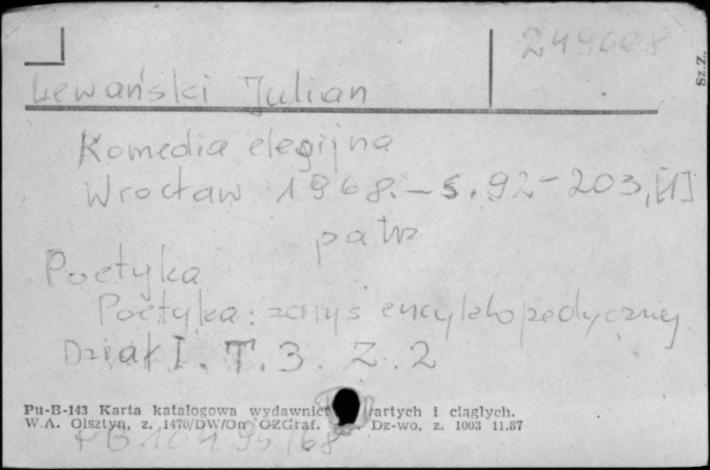 249008
Sz.Z.
Lewański Julian
Komedia elegijna
Wrocław 1968. – s. 92–203, [1]
patrz
Poetyka
Poetyka : zarys encyklopedyczny
Dział I. T. 3. Z. 2
Pu-B-143 Karta katalogowa wydawnict artych i ciągłych.
W.A. Olsztyn, z. 1470/DW/On OZGraf. Dz-wo, z. 1003 11.87